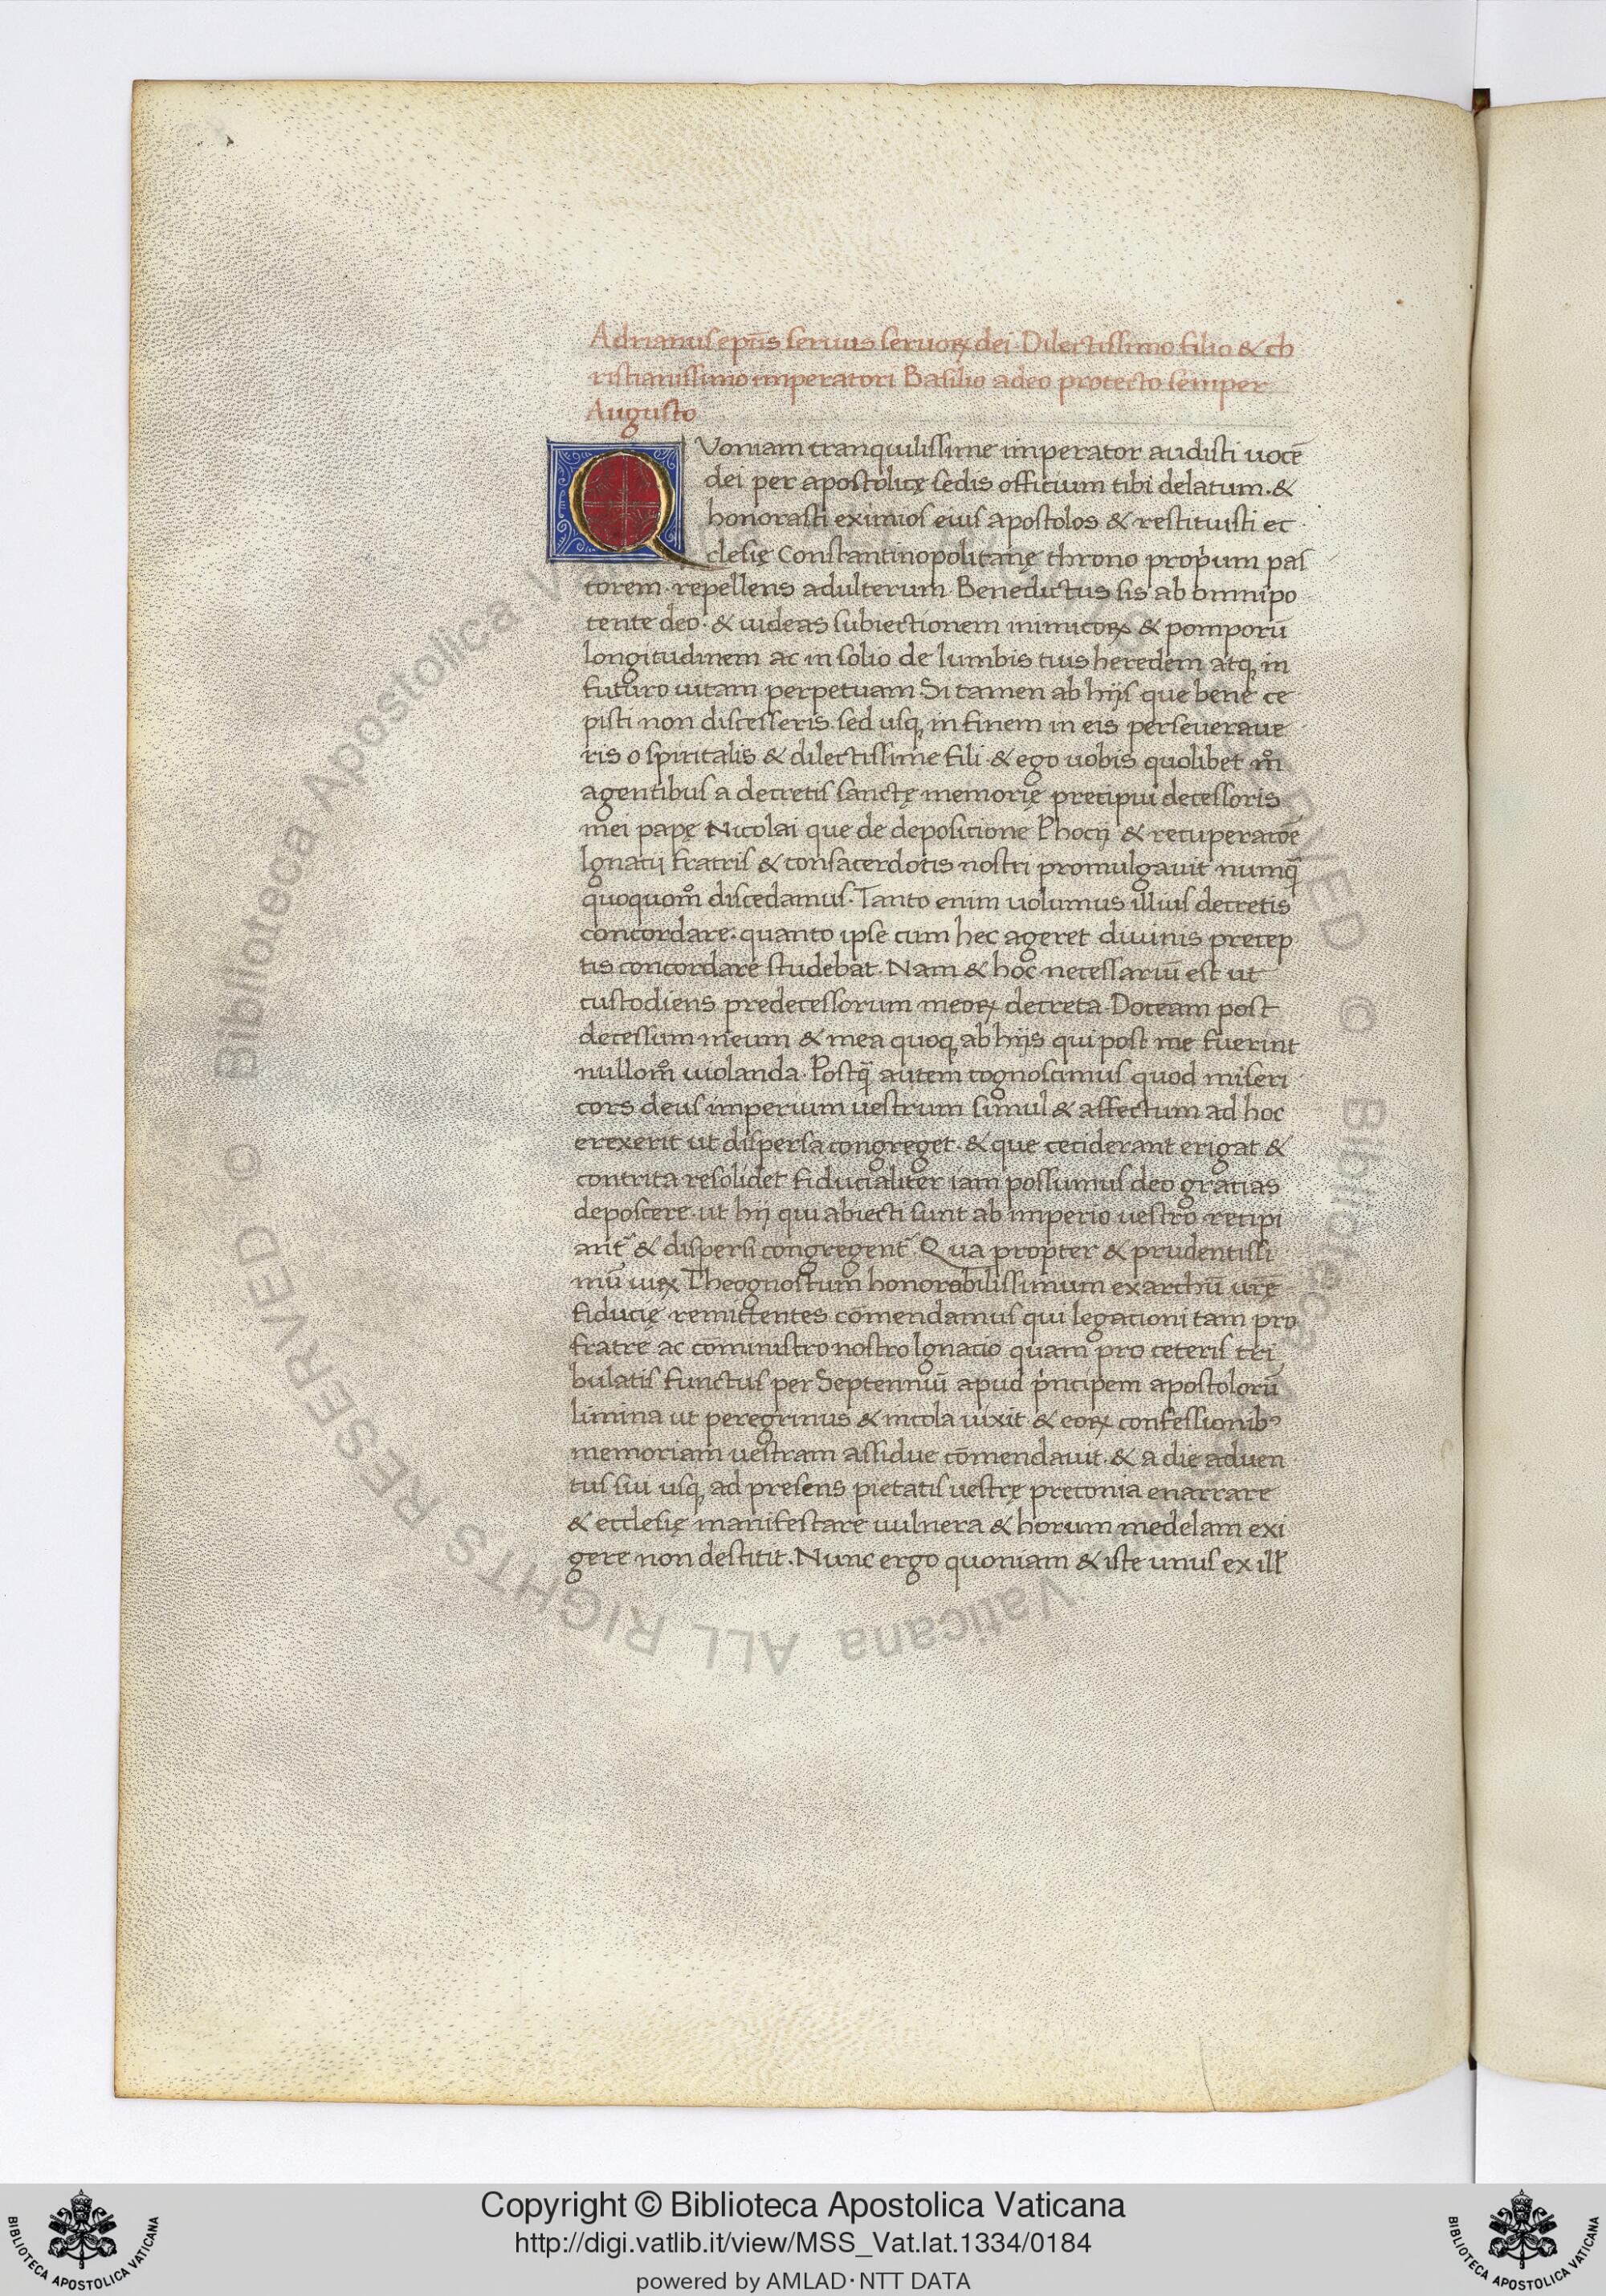 Adrianus ep̄s seruus seruoꝝ dei Dilectissimo filio & ch
ristianissimo imperatori Basilio adeo protecto semper
Augusto
QVoniam tranquilissime imperator audisti uocē
dei per apostolicę sedis officium tibi delatum. &
honorasti eximios eius apostolos & restituisti ec
clesię Constantinopolitanę throno proprium pas
torem. repellens adulterum. Benedictus sis ab omnipo
tente deo. & uideas subiectionem inimicoꝝ & pomporū
longitudinem ac in solio de lumbis tuis heredem atq; in
futuro uitam perpetuam Si tamen ab hijs que bene ce
pisti non discesseris. sed usq; in finem in eis perseueraue
ris o spiritalis & dilectissime fili. & ego uobis quolibet mͦ
agentibus a decretis sanctę memorię precipui decessoris
mei papę Nicolai que de depositione Phocij & recuperatōe
Ignatij fratris & consacerdotis nostri promulgauit numq̄
quoquomͦ discedamus. Tanto enim uolumus illius decretis
concordare. quanto ipse cum hec ageret diuinis precep
tis concordare studebat. Nam & hoc necessariū est ut
custodiens predecessorum meoꝝ decreta. Doceam post
decessum meum & mea quoq; ab hijs qui post me fuerint
nullomͦ uiolanda. Postq̄ autem cognoscimus quod miseri
cors deus imperium uestrum simul & affectum ad hoc
erexerit ut dispersa congreget. & que ceciderant erigat &
contrita resolidet fiducialiter iam possumus deo gratias
deposcere. ut hij qui abiecti sunt ab imperio uestro recipi
ant᷑ & dispersi congregent᷑. Qua propter & prudentissi
mū uiꝝ Theognostum honorabilissimum exarchū ur̄ę
fiducię remittentes cōmendamus qui legacioni tam pro
fratre ac cōministro nostro Ignacio quam pro ceteris tri
bulatis functus per Septenniū apud pͥncipem apostolorū
limina ut peregrinus & incola uixit & eoꝝ confessionibꝰ
memoriam uestram assidue cōmendauit. & a die aduen
tus sui usq; ad presens pietatis uestrę preconia enarrare
& ecclesię manifestare uulnera & horum medelam exi
gere non destitit. Nunc ergo quoniam & iste unus ex ill̕
Biblioteca Apostolica Vaticana ALL RIGHTS RESERVED ©
Copyright © Biblioteca Apostolica Vaticana
http://digi.vatlib.it/view/MSS_Vat.lat.1334/0184
powered by AMLAD·NTT DATA
BIBLIOTECA APOSTOLICA VATICANA
BIBLIOTECA APOSTOLICA VATICANA